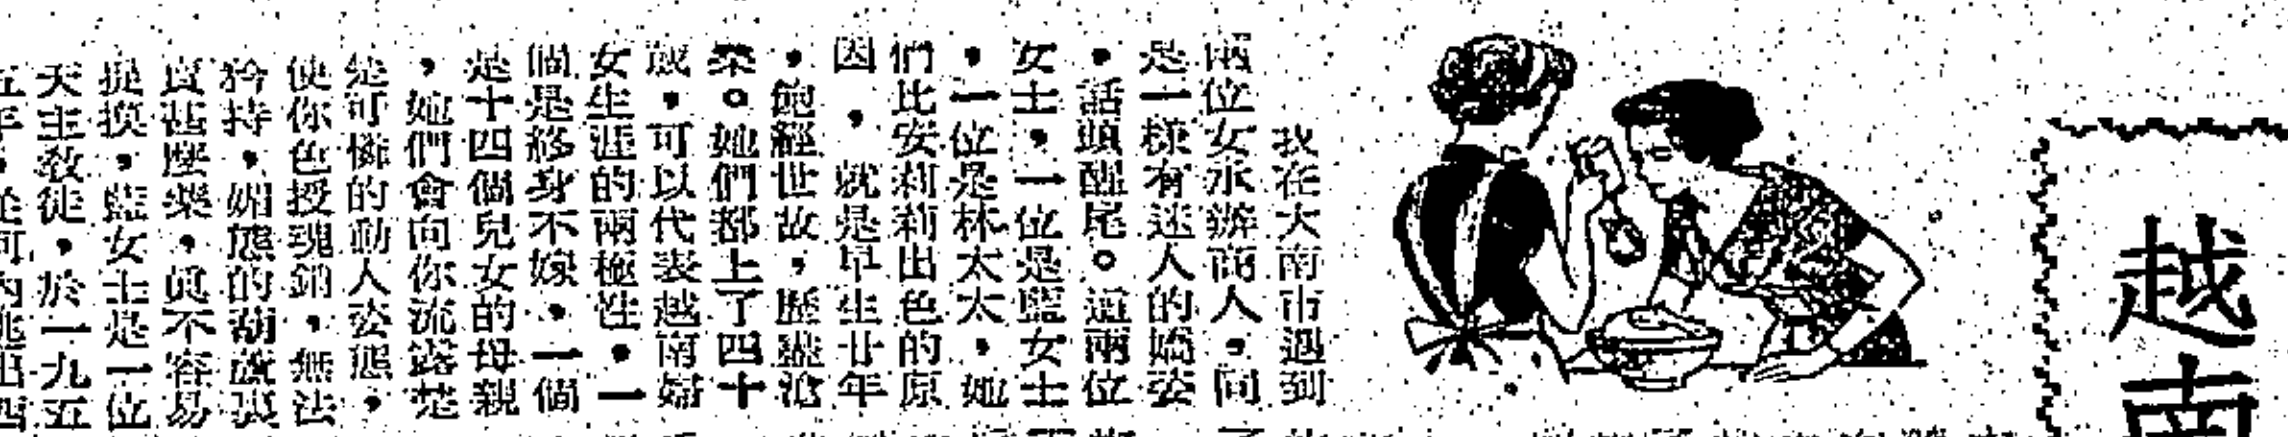 越南
我在大南市遇到
兩位女承辦商人，同
是一樣有迷人的嬌姿
，話頭醒尾。這兩位
女士，一位是藍女士
，一位是林太太，她
們比安莉莉出色的原
因，就是早生廿年
，飽經世故，歷盡滄
桑。她們都上了四十
歲，可以代表越南婦
女生涯的兩極性，一
個是移身不嫁，一個
是十四個兒女的母親
，她們會向你流露楚
楚可憐的動人姿態，
使你色授魂銷，無法
矜持，媚態的葫蘆裏
賣甚麼藥，眞不容易
捉摸，藍女士是一位
天主敎徒，於一九五
五年，從河內逃出西